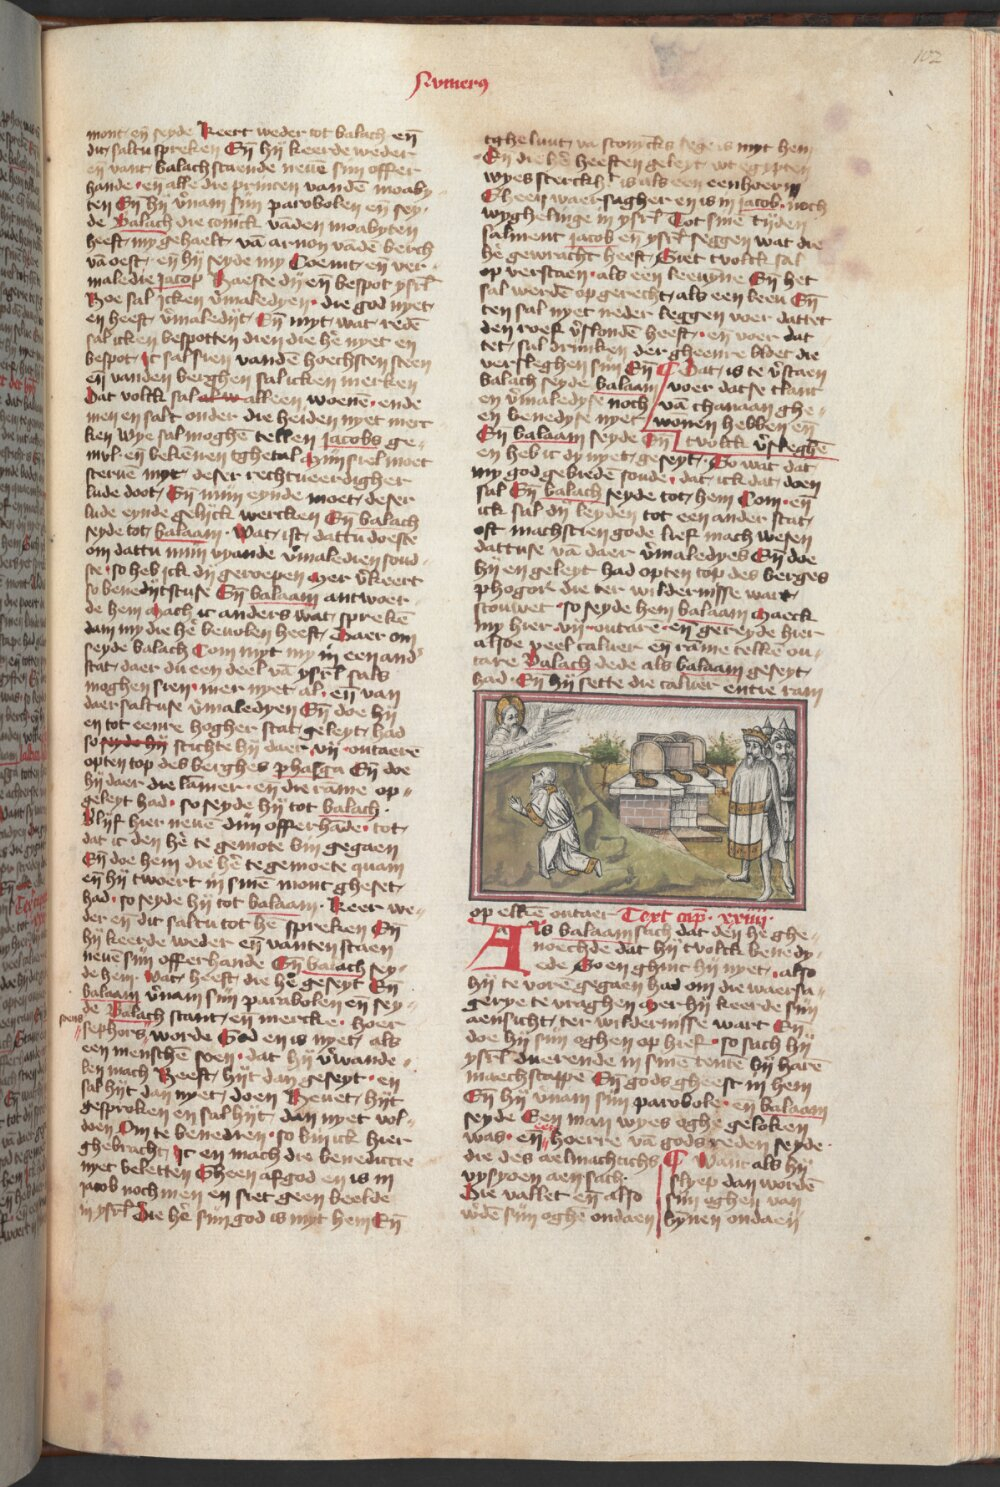 102
Numerus
mont eñ seyde Keert weder tot balach eñ
dit saltu spreken Eñ hij keerde weder
eñ vant balach staende neuē sijn offer
hande eñ alle die princen vandē moaby
ten Eñ hij v̄nam sijn parabolen eñ sey
de Balach die conick vādē moabyten
heeft my gehaelt vā arnon vādē berch
vā oest eñ hij seyde my Coemt eñ ver
maledie Jacop haeste dij eñ bespot ysrl̄
Hoe sal icken v̄maledyen die god nyet
en heeft v̄maledijt Eñ myt wat redē
sal icken bespotten dien die hē nyet en
bespot Ic sal sien vandē hoechsten steen
eñ vanden berghen sal icken mercken
Dat volck sal alleen woenē ende
men en salt onder die heiden nyet mer
ken Wye sal moghē tellen Jacobs ge
mul eñ bekēnen tghetal Mijn siel moet
steruē myt deser rechtueerdigher
lude doot Eñ mijn eynde moet deser
lude eynde gelijck wercken Eñ balach
seyde tot balaam Wat ist dattu doeste
om dattu mijn vyande v̄maledien soud
ste so heb ick dij geroepen Mer v̄keert
so benedijtstuse Eñ balaam antwoer
de hem Mach ic anders wat sprekē
dan my die hē beuolen heeft Daer om
seyde balach Com myt my in een and̄
stat daer du een deel vā ysrl̄ sals
moghen sien mer nyet al eñ van
daer saltuse v̄maledyen Eñ doe hij
en tot eenre hogher stat geleyt had
so seyde hij stichte hij daer vij ontaere
opten top des berghes phasga Eñ doe
hij daer die lāmer eñ die rāme op
geleyt had so seyde hij tot balach
Blijf hier neuē dijn offerhāde tot
dat ic den hē te gemote bin gegaen
Eñ doe hem die hē te gemoete quam
eñ hij twoert in sinē mont gheset
had so seyde hij tot balaam Keer we
der eñ dit saltu tot hē spreken Eñ
hij keerde weder eñ vanten staen
neuē sijn offerhande Eñ balach sey
de hem Wat heeft die hē geseyt Eñ
balaam v̄nam sijn parabolen eñ sey
de Balach stant eñ mercke hoer
sephors worde God en is nyet als
een menschē soen dat hij v̄wande
len mach Heeft hijt dan geseyt en
sal hijt dan nyet doen Heuet hijt
gesproken en sal hijt dan nyet vol
doen Om te benedien so bin ick hier
ghebracht Ic en mach die benedictie
nyet beletten Gheen afgod en is in
iacob noch men en siet geen beelde
in ysrl̄ Die hē sijn god is myt hem Eñ
tghe luut vā sconincks sege is myt hem
Eñ die hē heeften geleyt wt egypten
wyes sterckh̄t is als een eenhoern
Gheen waersagher en is in Jacob noch
wyghelinge in ysrl̄ Tot sinē tijden
salment Jacob eñ ysrl̄ seggen wat die
hē gewracht heeft Siet tvolck sal
op verstaen als een leewyne Eñ het
sal werdē op gerecht als een leeu Eñ
ten sal nyet neder leggen voer dattet
den roef v̄slondē heeft eñ voer dat
tet sal drincken der gheenre bloet die
verslegen sijn Eñ Dat is te v̄staen
balach seyde balaam voer datse tlant
en v̄maledyse noch vā chanaan ghe
en benedyse nyet wonen hebben eñ
Eñ balaam seyde Eñ tvolck v̄sleghē
en heb ic dy nyet geseyt So wat dat
my god gebiedē soude dat ick dat doen
sal Eñ balach seyde tot hem Com eñ
ick sal dij leyden tot een ander stat
oft machschien gode lief mach wesen
dattuse vā daer v̄maledyes Eñ doe
hij en geleyt had opten top des berges
phogor die ter wildernisse wart
scouwet so seyde hem balaam Maeck
my hier vij outare eñ gereyde hier
alsoe veel caluer eñ rāme telkē ou
tare Balach dede als balaam geseyt
had Eñ hij sette die caluer entie ram
op elkē outaer Text cap xxiiij
Als balaam sach dat den hē ghe
noechde dat hij tvolck benedy
ede So en ghinc hij nyet also
hij te vorē gegaen had om die waersa
gerye te vraghen Mer hij keerde sijn
aensicht ter wildernisse wart Eñ
doe hij sijn oghen op hief so sach hij
ysrl̄ duerende in sinē tentē bij harē
maechscappe Eñ gods gheest in hem
Eñ hij v̄nam sijn parabole eñ balaam
seyde Een man wyes oghe geloken
was eñ hoerre vā gods reden seyde
die des almachtichs Want als hij
vysyoen aen sach slyep dan wordē
Die vallet eñ also sijn oghen van
w̄dē sijn oghē ondaen bynen ondaen